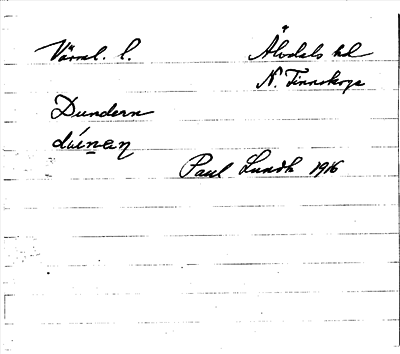 Värml. l. Älvdals hd
N. Finnskoga
Dundern
dúnan
Paul Lundh 1916